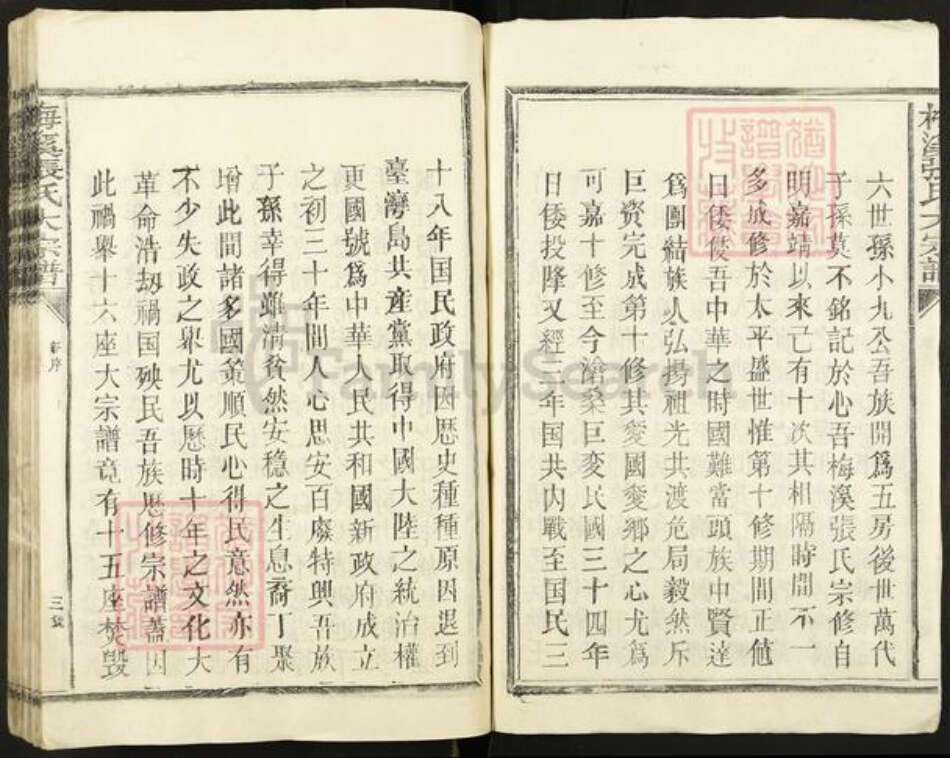 六世孫小九公吾族開爲五房後世萬代
子孫莫不銘記於心吾梅溪張氏宗修自
明嘉靖以來已有十次其相隔時間不一
多成修於太平盛世惟第十修期間正值
日倭侵吾中華之時國難當頭族中賢達
爲團結族人弘揚祖光共渡危局毅然斥
巨资完成第十修其愛國愛鄉之心尤爲
可嘉十修至今滄桑巨变民國三十四年
日倭投降又經三年国共内戰至国民三
十八年国民政府因歷史種種原因退到
臺灣島共産黨取得中國大陸之統治權
更國號爲中華人民共和國新政府成立
之初三十年間人心思安百廢特興吾族
子孫幸得雖清貧然安穩之生息裔丁聚
增此間諸多國策順民心得民意然亦有
不少失政之舉尤以歷時十年之文化大
革命浩劫禍国殃民吾族歷修宗譜蓋因
此禍舉十六座大宗譜竟有十五座焚毀
梅溪張氏大宗譜
新序
三號
梅溪張氏大宗譜
FamilySearch